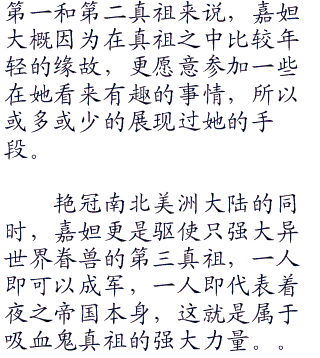 第一和第二真祖来说，嘉妲
大概因为在真祖之中比较年
轻的缘故，更愿意参加一些
在她看来有趣的事情，所以
或多或少的展现过她的手
段。
艳冠南北美洲大陆的同
时，嘉妲更是驱使只强大异
世界眷兽的第三真祖，一人
即可以成军，一人即代表着
夜之帝国本身，这就是属于
吸血鬼真祖的强大力量。。